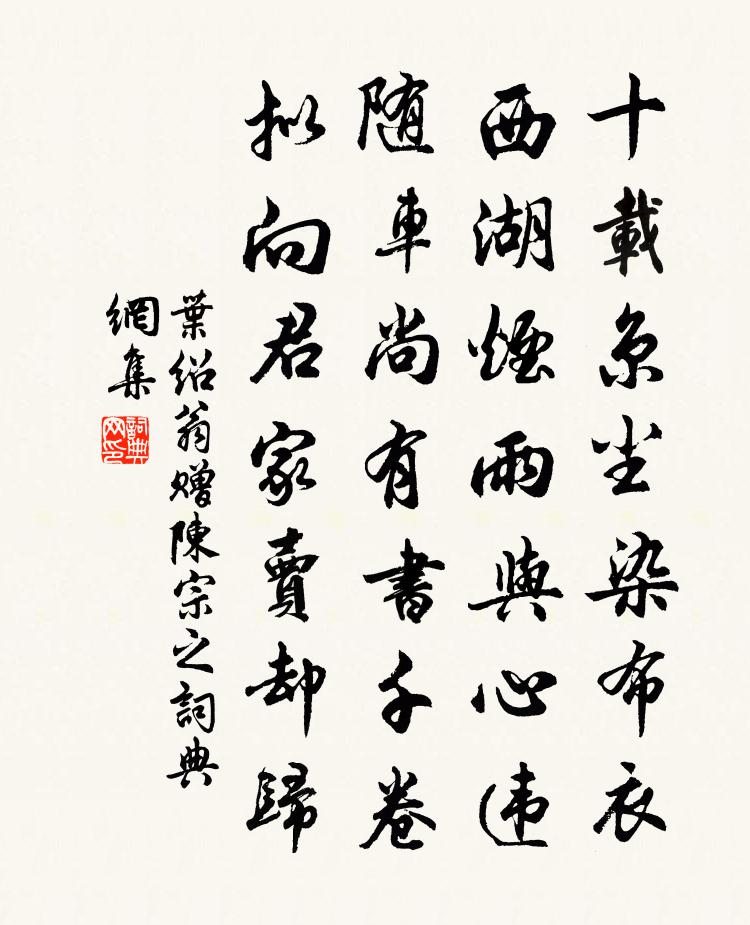 十載京尘染布衣
西湖煙雨與心违
随車尚有書千卷
拟向君家賣却歸
葉绍翁赠陳宗之詞典
網集
詞典網印